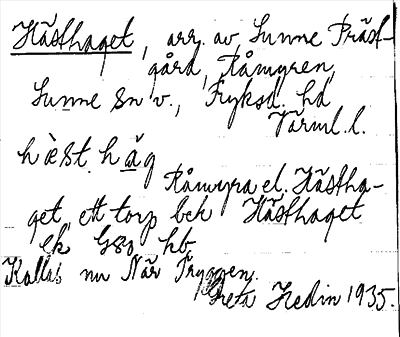 Hästhaget, arr. av Sunne Präst-
gård, Råmyren,
Sunne sn v., Fryksd. hd
Värml. l.
hèst hǎg
Råmyra el. Hästha-
get, ett torp bek Hästhaget
ek Gso hb
Kallas nu När Tryggen.
Greta Hedin 1935.